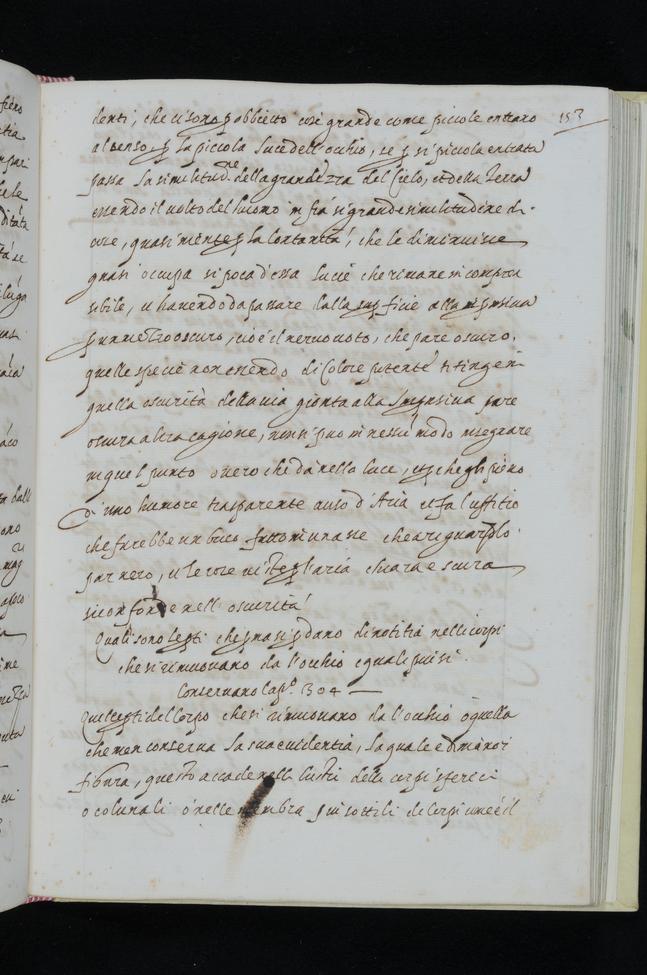 153
denti, che ci sono p obbietto così grande come piccole entrano
al senso, p la piccola luce dell'occhio, se p sì piccola entrata
passa la similitud.ne della grandezza del Cielo, et della Terra
essendo il volto del huomo in fra sì grande similitudine di
cose, quasi niente p la lontanità, che le diminuisce
quasi occupa sì poca d'essa luce che rimane incompren
sibile, et havendo da passare dalla supficie alla impnsiva
p un mezzo oscuro, cioè il nervo voto, che pare oscuro,
quelle specie non essendo di Colore potente si tingon in
quella oscurità della via gionta alla Impnsiva pare
oscura altra cagione, non si puo in nessu modo allegare
in quel punto è nero che da nella luce, et p che gli è pieno
d'uno humore trasparente a uso d'Aria et fa l'uffitio
che farebbe un buco fatto in una asse che a riguardalo
par nero, et le cose viste p l'aria chiara e scura
si confonde nell'oscurità
Quali sono le pti che p prima si pdano di notitia nelli corpi
che si rimuovano da l'occhio e quali più si
Conservano Cap.o 304
Quelle pti del Corpo che si rimuovano da l'occhio è quella
che men conserva la sua evidentia, la quale è di minor
figura, questo accade nelli lustri delli corpi sferici
o colunali ò nelle membra più sottili de Corpi come è il